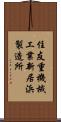 住友重機械
工業新居浜
製造所